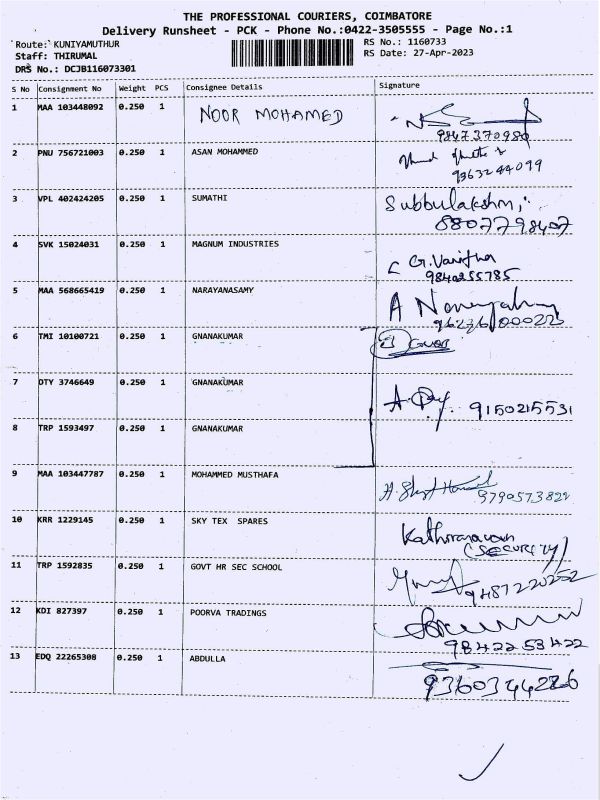 THE PROFESSIONAL COURIERS, COIMBATORE
Delivery Runsheet - PCK - Phone No.:0422-3505555 - Page No.:1
Route: KUNIYAMUTHUR RS No.: 1160733
Staff: THIRUMAL RS Date: 27-Apr-2023
DRS No.: DCJB116073301
S No Consignment No Weight PCS Consignee Details Signature
1 MAA 103448092 0.250 1 NOOR MOHAMED
9847370980
2 PNU 756721003 0.250 1 ASAN MOHAMMED
9363244099
3 VPL 402424205 0.250 1 SUMATHI Subbulakshmi
8807798407
4 SVK 15024031 0.250 1 MAGNUM INDUSTRIES G.Vanitha
9840255785
5 MAA 568665419 0.250 1 NARAYANASAMY A
6 TMI 10100721 0.250 1 GNANAKUMAR
7 DTY 3746649 0.250 1 GNANAKUMAR
9150215531
8 TRP 1593497 0.250 1 GNANAKUMAR
9 MAA 103447787 0.250 1 MOHAMMED MUSTHAFA
9790573822
10 KRR 1229145 0.250 1 SKY TEX SPARES
(SECURITY)
11 TRP 1592835 0.250 1 GOVT HR SEC SCHOOL
9487220252
12 KDI 827397 0.250 1 POORVA TRADINGS
9842253422
13 EDQ 22265308 0.250 1 ABDULLA
9360344286